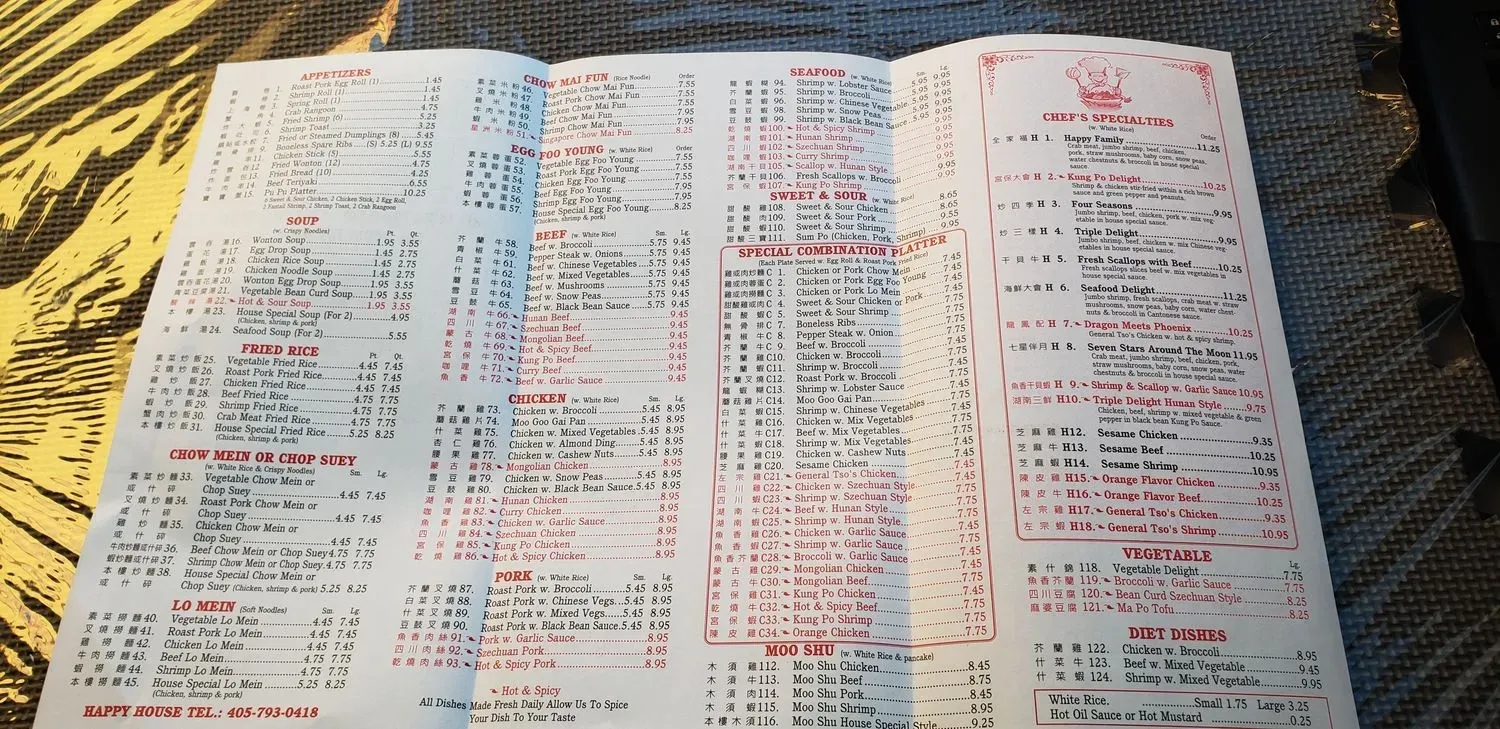 APPETIZERS
1. Roast Pork Egg Roll (1) 1.45
2. Shrimp Roll (1) 1.45
3. Spring Roll (1) 1.45
4. Crab Rangoon 4.75
5. Fried Shrimp (6) 5.25
6. Shrimp Toast 3.25
7. Fried or Steamed Dumplings (8) 5.45
Boneless Spare Ribs (S) 5.25 (L) 9.55
11. Chicken Stick (5) 5.55
12. Fried Wonton (12) 4.75
13. Fried Bread (10) 4.25
14. Beef Teriyaki 6.55
15. Pu Pu Platter 10.25
6 Sweet & Sour Chicken, 2 Chicken Stick, 2 Egg Roll,
2 Fantail Shrimp, 2 Shrimp Toast, 2 Crab Rangoon
SOUP
(w. Crispy Noodles) Pt. Qt.
雲吞湯16. Wonton Soup 1.95 3.55
蛋花湯17. Egg Drop Soup 1.45 2.75
雞飯湯18. Chicken Rice Soup 1.45 2.75
雞麵湯19. Chicken Noodle Soup 1.45 2.75
雲吞蛋花湯20. Wonton Egg Drop Soup 1.95 3.55
蔬菜豆腐湯21. Vegetable Bean Curd Soup 1.95 3.55
酸辣湯22. Hot & Sour Soup 1.95 3.55
本樓湯23. House Special Soup (For 2) 4.95
(Chicken, shrimp & pork)
海鮮湯24. Seafood Soup (For 2) 5.55
FRIED RICE Pt. Qt.
素菜炒飯25. Vegetable Fried Rice 4.45 7.45
叉燒炒飯26. Roast Pork Fried Rice 4.45 7.45
雞炒飯27. Chicken Fried Rice 4.45 7.45
牛肉炒飯28. Beef Fried Rice 4.75 7.75
蝦炒飯29. Shrimp Fried Rice 4.75 7.75
蟹肉炒飯30. Crab Meat Fried Rice 4.75 7.75
本樓炒飯31. House Special Fried Rice 5.25 8.25
(Chicken, shrimp & pork)
CHOW MEIN OR CHOP SUEY
(w. White Rice & Crispy Noodles) Sm. Lg.
素菜炒麵33. Vegetable Chow Mein or
或什碎 Chop Suey 4.45 7.45
叉燒炒麵34. Roast Pork Chow Mein or
或什碎 Chop Suey 4.45 7.45
雞炒麵35. Chicken Chow Mein or
或什碎 Chop Suey 4.45 7.45
牛肉炒麵或什碎36. Beef Chow Mein or Chop Suey 4.75 7.75
蝦炒麵或什碎37. Shrimp Chow Mein or Chop Suey 4.75 7.75
本樓炒麵38. House Special Chow Mein or
或什碎 Chop Suey (Chicken, shrimp & pork) 5.25 8.25
LO MEIN (Soft Noodles) Sm. Lg.
素菜撈麵40. Vegetable Lo Mein 4.45 7.45
叉燒撈麵41. Roast Pork Lo Mein 4.45 7.45
雞撈麵42. Chicken Lo Mein 4.45 7.45
牛肉撈麵43. Beef Lo Mein 4.75 7.75
蝦撈麵44. Shrimp Lo Mein 4.75 7.75
本樓撈麵45. House Special Lo Mein 5.25 8.25
(Chicken, shrimp & pork)
HAPPY HOUSE TEL.: 405-793-0418
CHOW MAI FUN (Rice Noodle) Order
素菜米粉46. Vegetable Chow Mai Fun 7.45
叉燒米粉47. Roast Pork Chow Mai Fun 7.45
雞米粉48. Chicken Chow Mai Fun 7.45
牛肉米粉49. Beef Chow Mai Fun 7.95
蝦米粉50. Shrimp Chow Mai Fun 7.95
星洲米粉51. Singapore Chow Mai Fun 8.25
EGG FOO YOUNG (w. White Rice) Order
素菜蓉蛋52. Vegetable Egg Foo Young 7.45
叉燒蓉蛋53. Roast Pork Egg Foo Young 7.45
雞蓉蛋54. Chicken Egg Foo Young 7.45
牛肉蓉蛋55. Beef Egg Foo Young 7.95
蝦蓉蛋56. Shrimp Egg Foo Young 7.95
本樓蓉蛋57. House Special Egg Foo Young 8.25
(Chicken, shrimp & pork)
BEEF (w. White Rice) Sm. Lg.
芥蘭牛58. Beef w. Broccoli 5.75 9.45
青椒牛59. Pepper Steak w. Onions 5.75 9.45
白菜牛61. Beef w. Chinese Vegetables 5.75 9.45
什菜牛62. Beef w. Mixed Vegetables 5.75 9.45
蘑菇牛63. Beef w. Mushrooms 5.75 9.45
雪豆牛64. Beef w. Snow Peas 5.75 9.45
豆鼓牛65. Beef w. Black Bean Sauce 5.75 9.45
湖南牛66. Hunan Beef 9.45
四川牛67. Szechuan Beef 9.45
蒙古牛68. Mongolian Beef 9.45
乾燒牛69. Hot & Spicy Beef 9.45
宮保牛70. Kung Po Beef 9.45
咖哩牛71. Curry Beef 9.45
魚香牛72. Beef w. Garlic Sauce 9.45
CHICKEN (w. White Rice) Sm. Lg.
芥蘭雞73. Chicken w. Broccoli 5.45 8.95
蘑菇雞片74. Moo Goo Gai Pan 5.45 8.95
什菜雞75. Chicken w. Mixed Vegetables 5.45 8.95
杏仁雞76. Chicken w. Almond Ding 5.45 8.95
腰果雞77. Chicken w. Cashew Nuts 5.45 8.95
蒙古雞78. Mongolian Chicken 8.95
雪豆雞79. Chicken w. Snow Peas 5.45 8.95
豆鼓雞80. Chicken w. Black Bean Sauce 5.45 8.95
湖南雞81. Hunan Chicken 8.95
咖哩雞82. Curry Chicken 8.95
魚香雞83. Chicken w. Garlic Sauce 8.95
四川雞84. Szechuan Chicken 8.95
宮保雞85. Kung Po Chicken 8.95
乾燒雞86. Hot & Spicy Chicken 8.95
PORK (w. White Rice) Sm. Lg.
芥蘭叉燒87. Roast Pork w. Broccoli 5.45 8.95
白菜叉燒88. Roast Pork w. Chinese Vegs 5.45 8.95
什菜叉燒89. Roast Pork w. Mixed Vegs 5.45 8.95
豆鼓叉燒90. Roast Pork w. Black Bean Sauce 5.45 8.95
魚香肉絲91. Pork w. Garlic Sauce 8.95
四川肉絲92. Szechuan Pork 8.95
乾燒肉絲93. Hot & Spicy Pork 8.95
Hot & Spicy
All Dishes Made Fresh Daily Allow Us To Spice
Your Dish To Your Taste
SEAFOOD (w. White Rice) Sm. Lg.
龍蝦糊94. Shrimp w. Lobster Sauce 5.95 9.95
芥蘭蝦95. Shrimp w. Broccoli 5.95 9.95
白菜蝦96. Shrimp w. Chinese Vegetable 5.95 9.95
雪豆蝦98. Shrimp w. Snow Peas 5.95 9.95
豆鼓蝦99. Shrimp w. Black Bean Sauce 5.95 9.95
乾燒蝦100. Hot & Spicy Shrimp 9.95
湖南蝦101. Hunan Shrimp 9.95
四川蝦102. Szechuan Shrimp 9.95
咖哩蝦103. Curry Shrimp 9.95
湖南干貝105. Scallop w. Hunan Sauce 9.95
芥蘭干貝106. Fresh Scallops w. Broccoli 9.95
宮保蝦107. Kung Po Shrimp 9.95
SWEET & SOUR (w. White Rice)
甜酸雞108. Sweet & Sour Chicken 8.65
甜酸肉109. Sweet & Sour Pork 8.65
甜酸蝦110. Sweet & Sour Shrimp 9.55
甜酸三寶111. Sum Po (Chicken, Pork, Shrimp) 9.95
SPECIAL COMBINATION PLATTER
(Each Plate Served w. Egg Roll & Roast Pork Fried Rice)
雞或肉炒麵C 1. Chicken or Pork Chow Mein 7.45
雞或肉蓉蛋C 2. Chicken or Pork Egg Foo Young 7.45
雞或肉撈麵C 3. Chicken or Pork Lo Mein 7.45
甜酸雞或肉C 4. Sweet & Sour Chicken or Pork 7.45
甜酸蝦C 5. Sweet & Sour Shrimp 7.75
無骨排C 7. Boneless Ribs 7.75
青椒牛C 8. Pepper Steak w. Onion 7.75
芥蘭牛C 9. Beef w. Broccoli 7.75
芥蘭雞C10. Chicken w. Broccoli 7.45
芥蘭蝦C11. Shrimp w. Broccoli 7.75
芥蘭叉燒C12. Roast Pork w. Broccoli 7.45
龍蝦糊C13. Shrimp w. Lobster Sauce 7.75
蘑菇雞片C14. Moo Goo Gai Pan 7.45
白菜蝦C15. Shrimp w. Chinese Vegetables 7.75
什菜雞C16. Chicken w. Mix Vegetables 7.45
什菜牛C17. Beef w. Mix Vegetables 7.75
什菜蝦C18. Shrimp w. Mix Vegetables 7.75
腰果雞C19. Chicken w. Cashew Nuts 7.45
芝麻雞C20. Sesame Chicken 7.45
左宗雞C21. General Tso's Chicken 7.45
四川雞C22. Chicken w. Szechuan Style 7.45
四川蝦C23. Shrimp w. Szechuan Style 7.75
湖南牛C24. Beef w. Hunan Style 7.75
湖南蝦C25. Shrimp w. Hunan Style 7.75
魚香雞C26. Chicken w. Garlic Sauce 7.45
魚香蝦C27. Shrimp w. Garlic Sauce 7.75
魚香芥蘭C28. Broccoli w. Garlic Sauce 7.45
蒙古雞C29. Mongolian Chicken 7.45
蒙古牛C30. Mongolian Beef 7.75
宮保雞C31. Kung Po Chicken 7.45
乾燒牛C32. Hot & Spicy Beef 7.75
宮保蝦C33. Kung Po Shrimp 7.75
陳皮雞C34. Orange Chicken 7.75
MOO SHU (w. White Rice & pancake)
木須雞112. Moo Shu Chicken 8.45
木須牛113. Moo Shu Beef 8.75
木須肉114. Moo Shu Pork 8.45
木須蝦115. Moo Shu Shrimp 8.95
本樓木須116. Moo Shu House Special Style 9.25
CHEF'S SPECIALTIES
(w. White Rice) Order
全家福H 1. Happy Family 11.25
Crab meat, jumbo shrimp, beef, chicken,
pork, straw mushrooms, baby corn, snow peas,
water chestnuts & broccoli in house special
sauce.
宮保大會H 2. Kung Po Delight 10.25
Shrimp & chicken stir-fried within a rich brown
sauce and green pepper and peanuts.
炒四季H 3. Four Seasons 9.95
Jumbo shrimp, beef, chicken, pork w. mix veg-
etable in house special sauce.
炒三樣H 4. Triple Delight 9.95
Jumbo shrimp, beef, chicken w. mix Chinese veg-
etables in house special sauce.
干貝牛H 5. Fresh Scallops with Beef 10.25
Fresh scallops slices beef w. mix vegetables in
house special sauce.
海鮮大會H 6. Seafood Delight 11.25
Jumbo shrimp, fresh scallops, crab meat w. straw
mushrooms, snow peas, baby corn, water chest-
nuts & broccoli in Cantonese sauce.
龍鳳配H 7. Dragon Meets Phoenix 10.25
General Tso's Chicken w. hot & spicy shrimp.
七星伴月H 8. Seven Stars Around The Moon 11.95
Crab meat, jumbo shrimp, beef, chicken, pork,
straw mushrooms, baby corn, snow peas, water
chestnuts & broccoli in house special sauce.
魚香干貝蝦H 9. Shrimp & Scallop w. Garlic Sauce 10.95
湖南三鮮H10. Triple Delight Hunan Style 9.75
Chicken, beef, shrimp w. mixed vegetable & green
pepper in black bean Kung Po Sauce.
芝麻雞H12. Sesame Chicken 9.35
芝麻牛H13. Sesame Beef 10.25
芝麻蝦H14. Sesame Shrimp 10.95
陳皮雞H15. Orange Flavor Chicken 9.35
陳皮牛H16. Orange Flavor Beef 10.25
左宗雞H17. General Tso's Chicken 9.35
左宗蝦H18. General Tso's Shrimp 10.95
VEGETABLE Lg.
素什錦118. Vegetable Delight 7.75
魚香芥蘭119. Broccoli w. Garlic Sauce 7.75
四川豆腐120. Bean Curd Szechuan Style 8.25
麻婆豆腐121. Ma Po Tofu 8.25
DIET DISHES Lg.
芥蘭雞122. Chicken w. Broccoli 8.95
什菜牛123. Beef w. Mixed Vegetable 9.45
什菜蝦124. Shrimp w. Mixed Vegetable 9.95
White Rice. Small 1.75 Large 3.25
Hot Oil Sauce or Hot Mustard 0.25